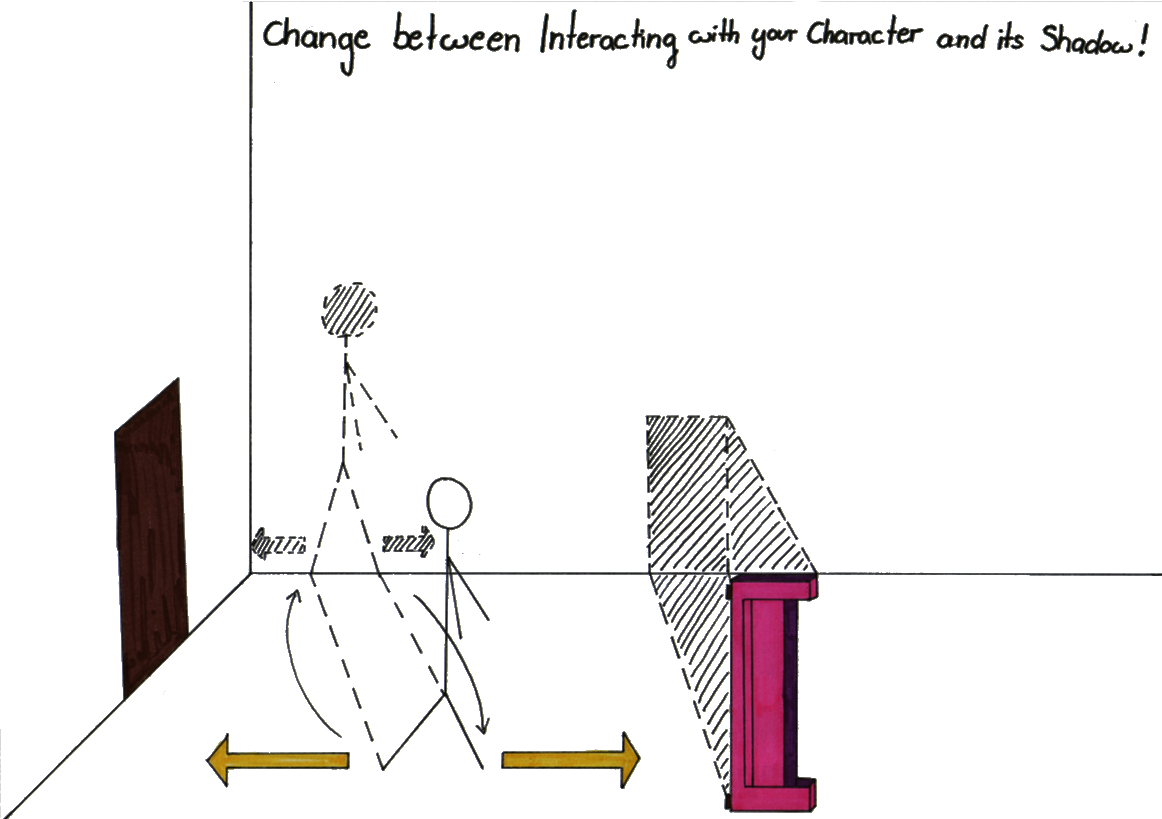 Change between Interacting with your Character and its Shadow!